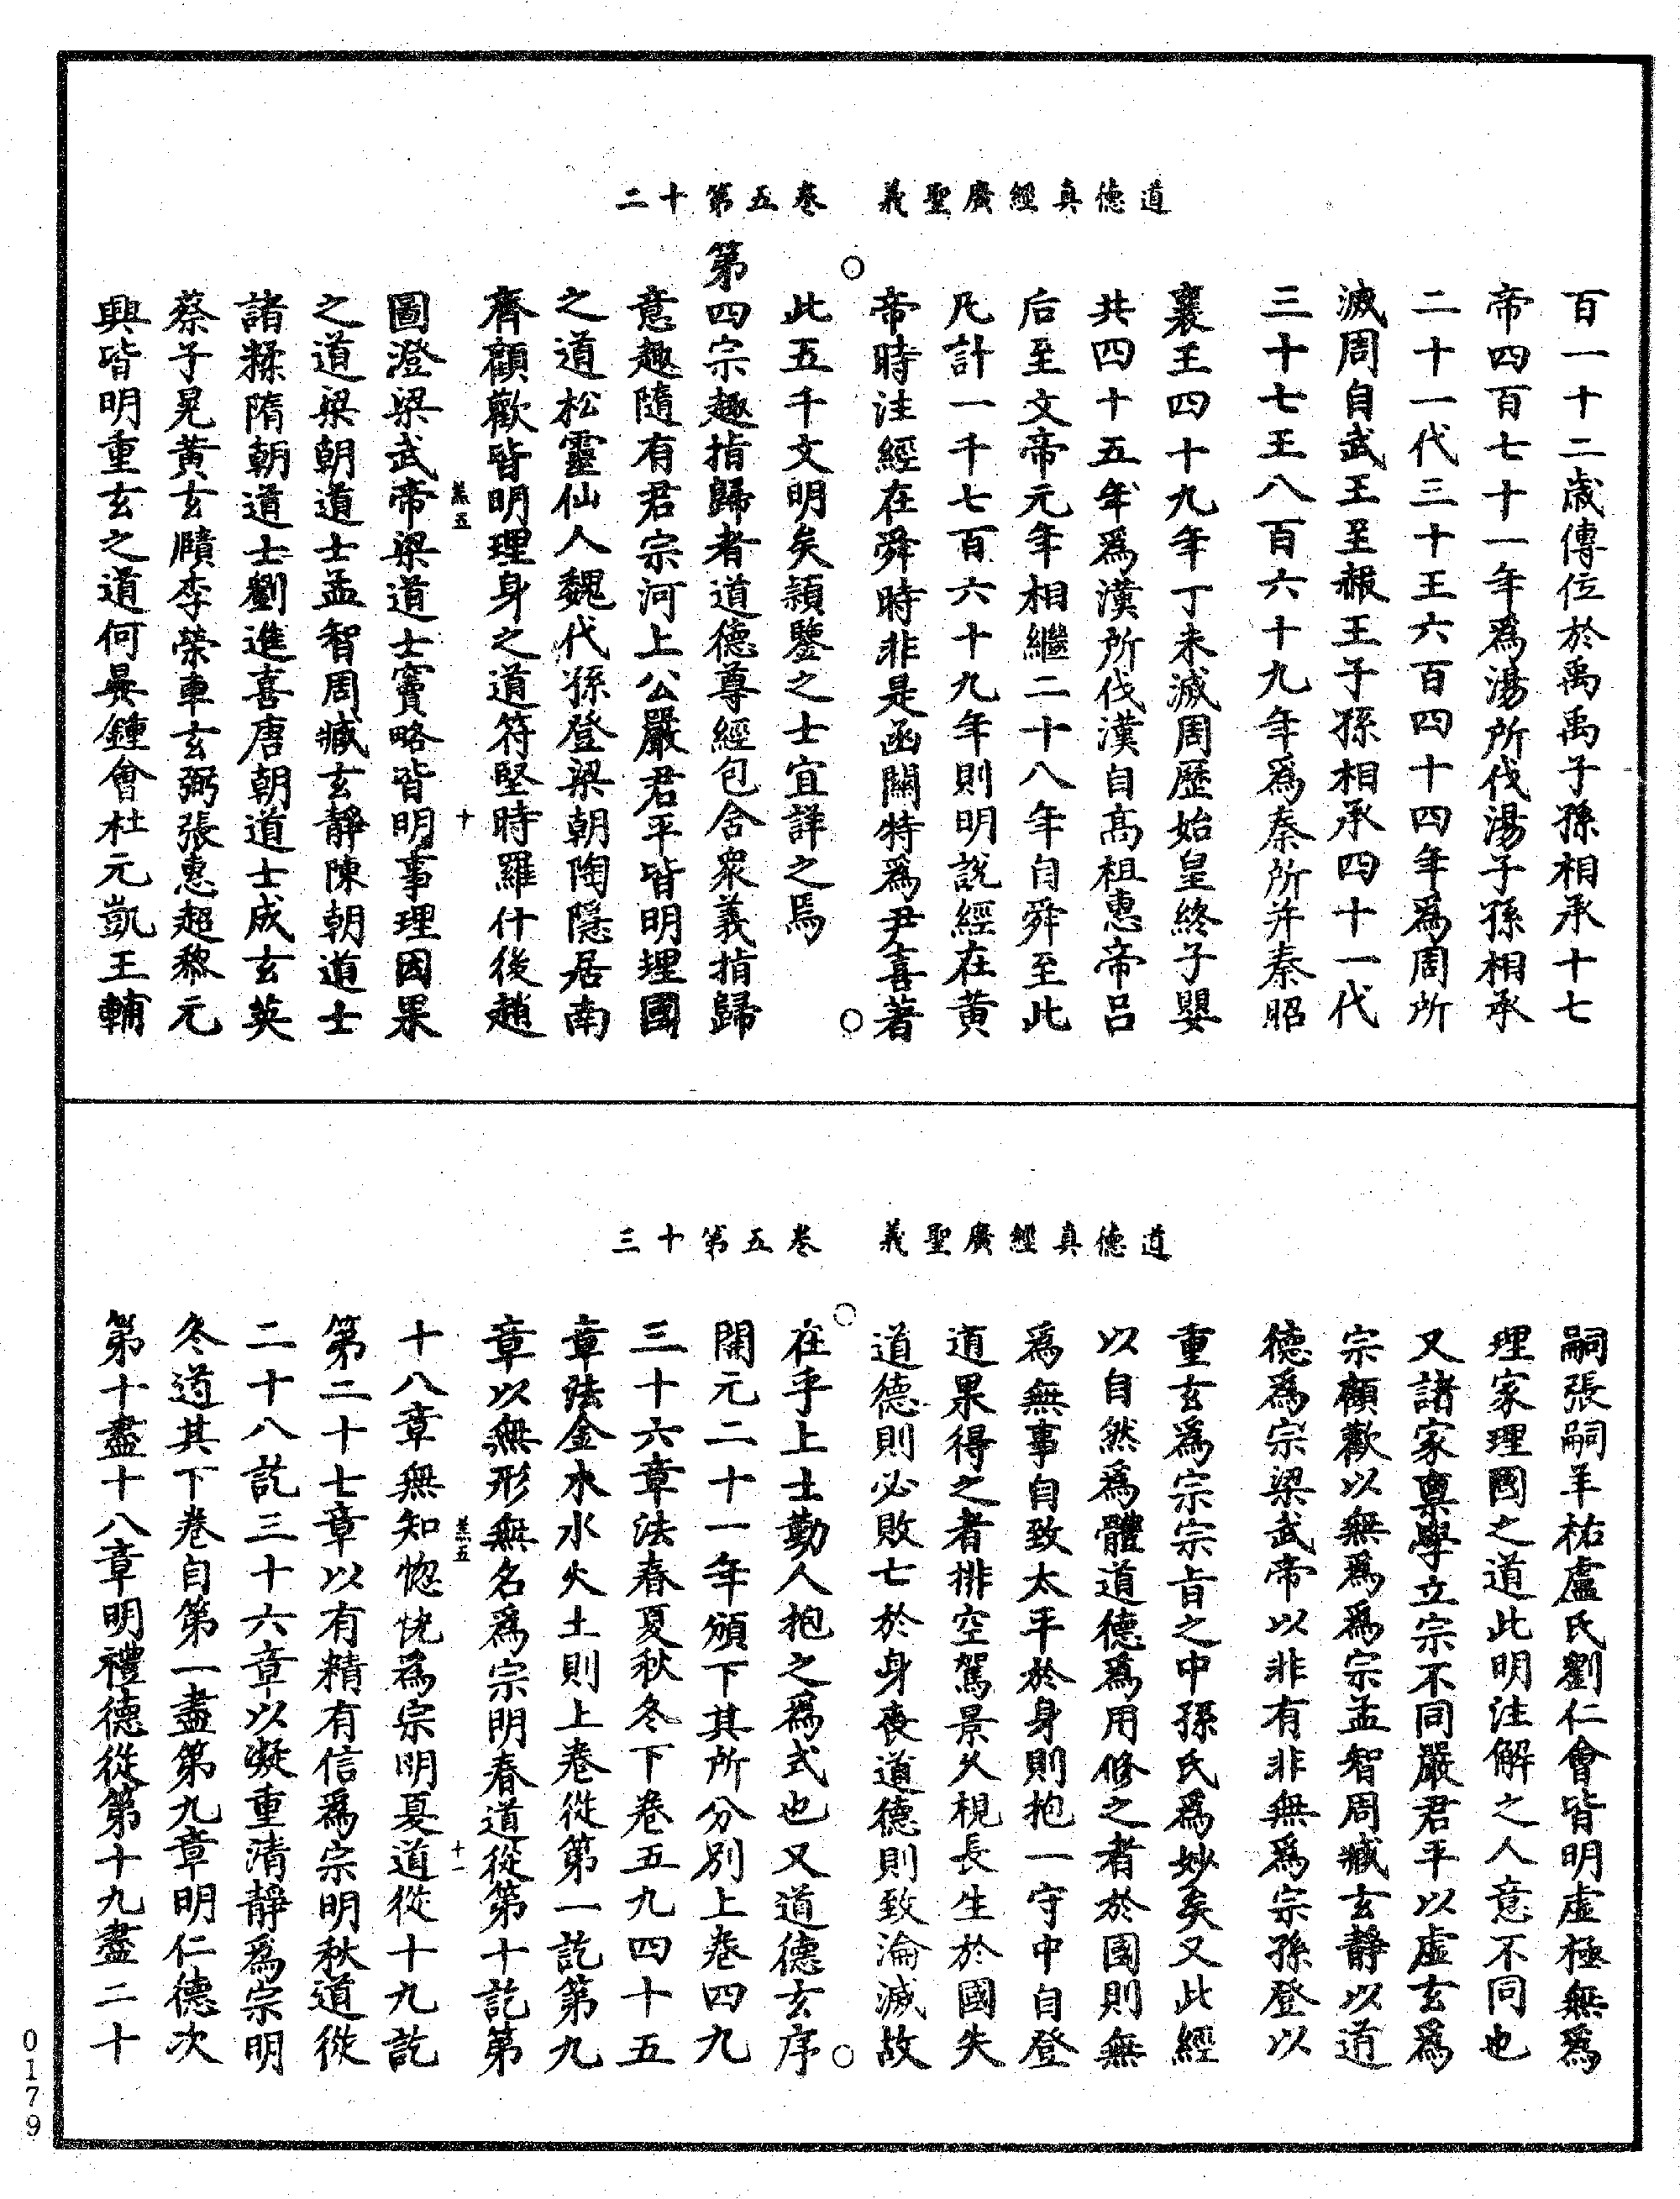 道德真經廣聖義　卷五第十二
百一十二歲傳位於禹禹子孫相承十七
帝四百七十一年爲湯所伐湯子孫相承
二十一代三十王六百四十四年爲周所
滅周自武王至赧王子孫相承四十一代
三十七王八百六十九年爲秦所并秦昭
襄王四十九年丁未滅周歷始皇終子嬰
共四十五年爲漢所伐漢自高祖惠帝呂
后至文帝元年相繼二十八年自舜至此
凡計一千七百六十九年則明說經在黃
帝時注經在舜時非是函關特爲尹喜著
此五千文明矣穎鑒之士宜詳之焉
第四宗趣指歸者道德尊經包含衆義指歸
意趣隨有君宗河上公嚴君平皆明理國
之道松靈仙人魏代孫登梁朝陶隱居南
齊顧歡皆明理身之道符堅時羅什後趙
羔五　十
圖澄梁武帝梁道士竇略皆明事理因果
之道梁朝道士孟智周臧玄靜陳朝道士
諸糅隋朝道士劉進喜唐朝道士成玄英
蔡子晃黃玄賾李榮車玄弼張惠超黎元
興皆明重玄之道何晏鍾會杜元凱王輔
道德真經廣聖義　卷五第十三
嗣張嗣羊祜盧氏劉仁會皆明虛極無爲
理家理國之道此明注解之人意不同也
又諸家稟學立宗不同嚴君平以虛玄爲
宗顧歡以無爲爲宗孟智周臧玄靜以道
德爲宗梁武帝以非有非無爲宗孫登以
重玄爲宗宗旨之中孫氏爲妙矣又此經
以自然爲體道德爲用修之者於國則無
爲無事自致太平於身則抱一守中自登
道果得之者排空駕景久視長生於國失
道德則必敗亡於身喪道德則致淪滅故
在乎上士勤人抱之爲式也又道德玄序
開元二十一年頒下其所分別上卷四九
三十六章法春夏秋冬下卷五九四十五
章法金木水火土則上卷從第一訖第九
章以無形無名爲宗明春道從第十訖第
羔五　十一
十八章無知惚恍爲宗明夏道從十九訖
第二十七章以有精有信爲宗明秋道從
二十八訖三十六章以凝重清靜爲宗明
冬道其下卷自第一盡第九章明仁德次
第十盡十八章明禮德從第十九盡二十
0179